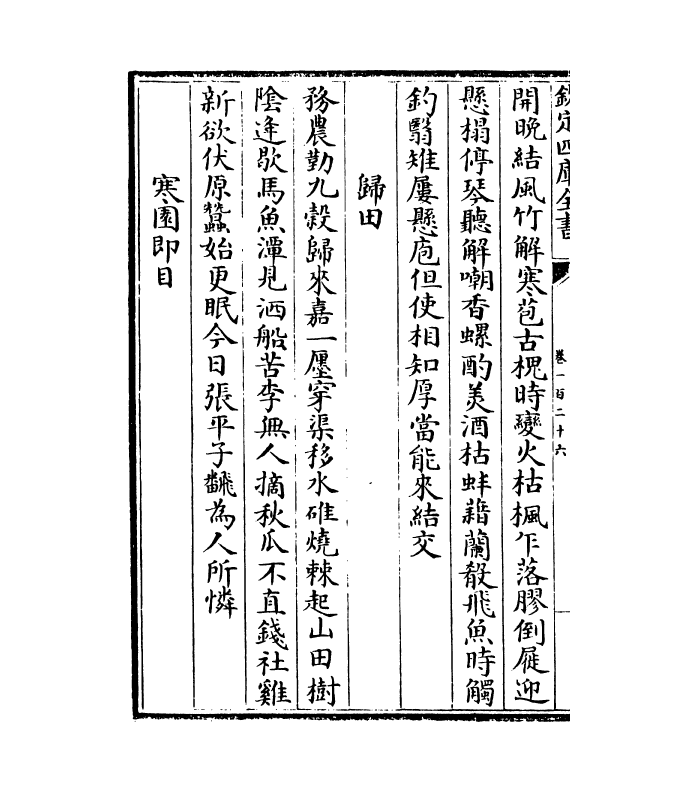 欽定四庫全書
卷一百二十六
開晩結風竹解寒苞古槐時變火枯楓乍落膠倒屣迎
懸榻停琴聽解嘲香螺酌美酒枯蚌藉蘭殽飛魚時觸
釣翳雉屢懸庖但使相知厚當能來結交
歸田
務農勤九穀歸來嘉一㕓穿渠移水碓燒棘起山田樹
陰逢歇馬魚潭見洒船苦李無人摘秋瓜不直錢社雞
新欲伏原蠶始更眠今日張平子翻為人所憐
寒園即目